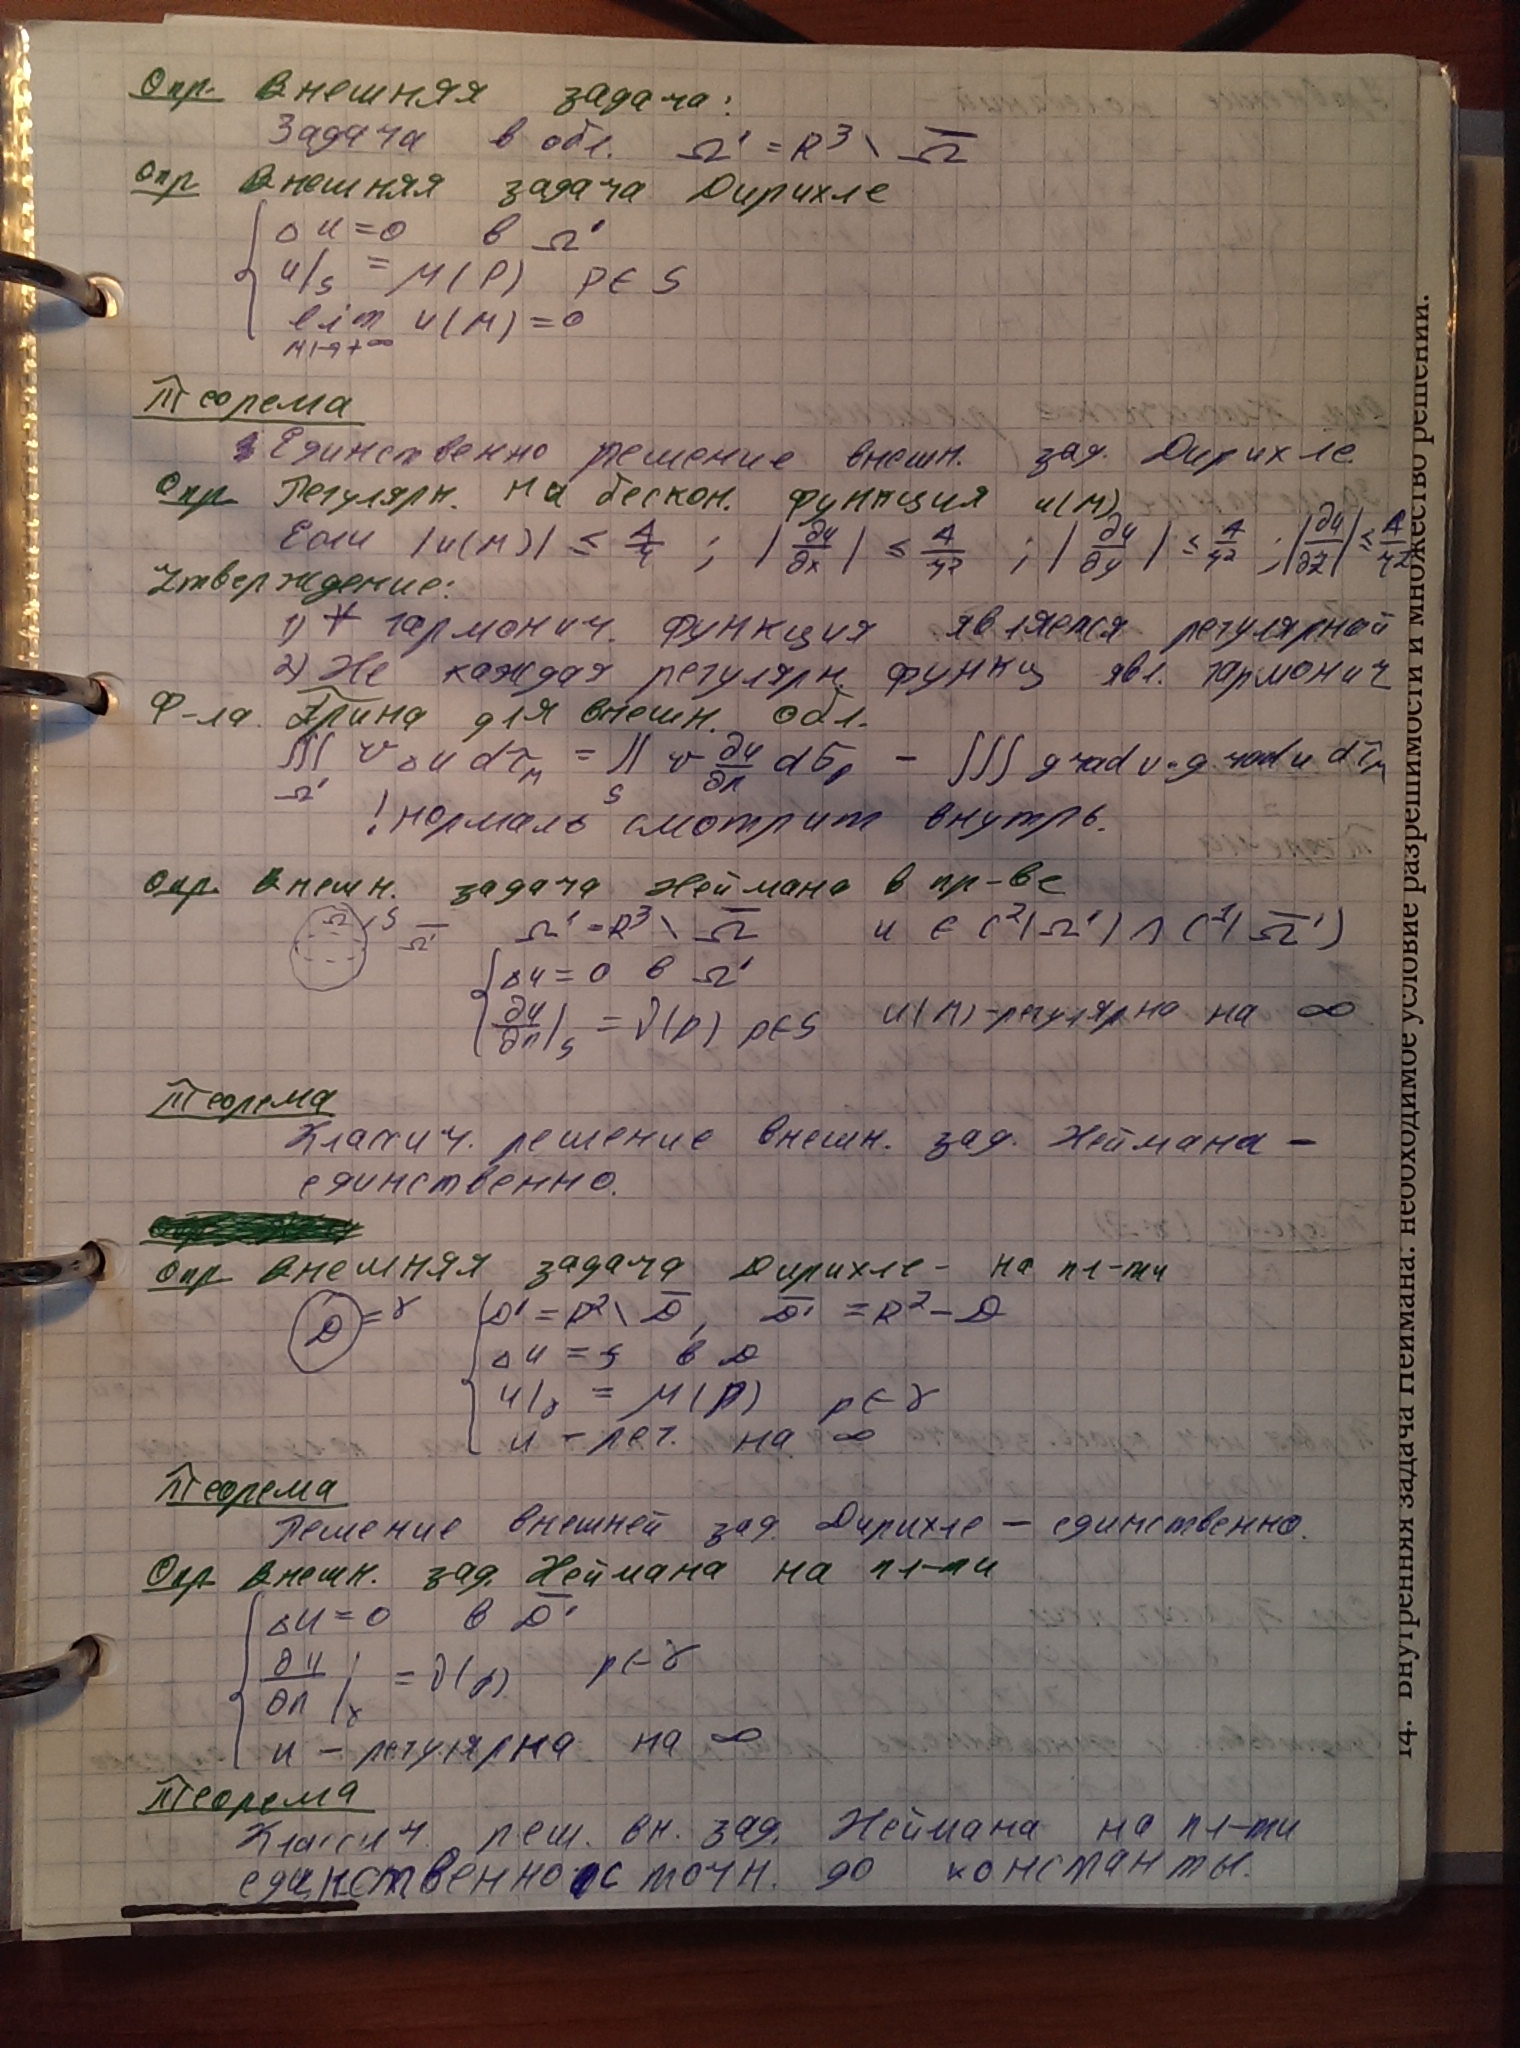 Опр. Внешняя задача:
Задача в обл. Ω' = R³ \ Ω̅
Опр Внешняя задача Дирихле
{ Δu = 0 в Ω'
u|_S = μ(P) P ∈ S
lim u(M) = 0
M→+∞
Теорема
Единственно решение внешн. зад. Дирихле
Опр Регулярн. на бескон. функция u(M)
Если |u(M)| ≤ A/r ; |∂u/∂x| ≤ A/r² ; |∂u/∂y| ≤ A/r² ; |∂u/∂z| ≤ A/r²
Утверждение:
1) ∀ гармонич. функция является регулярной
2) Не каждая регулярн функц явл. гармонич
Ф-ла Грина для внешн. обл.
∭_Ω' v Δu dτ_M = ∬_S v ∂u/∂n dσ_P − ∭ grad v · grad u dτ_M
! нормаль смотрит внутрь.
Опр. Внешн. задача Неймана в пр-ве
Ω S Ω̅' Ω' = R³ \ Ω̅ u ∈ C²(Ω') ∩ C¹(Ω̅')
{ Δu = 0 в Ω'
∂u/∂n|_S = ν(p) p∈S u(M) – регулярна на ∞
Теорема
Класич. решение внешн. зад. Неймана –
единственно.
Опр Внешняя задача Дирихле - на пл-ти
D = γ { D' = R² \ D̅, D̅' = R² − D
Δu = f в D
u|_γ = μ(p) p ∈ γ
u – рег. на ∞
Теорема
Решение внешней зад. Дирихле – единственно.
Опр Внешн. зад. Неймана на пл-ти
{ Δu = 0 в D̅'
∂u/∂n|_γ = ν(p) p ∈ γ
u – регулярна на ∞
Теорема
Классич. реш. вн. зад. Неймана на пл-ти
единственно с точн. до константы.
14. Внутренняя задача Неймана: необходимое условие разрешимости и множество решений.